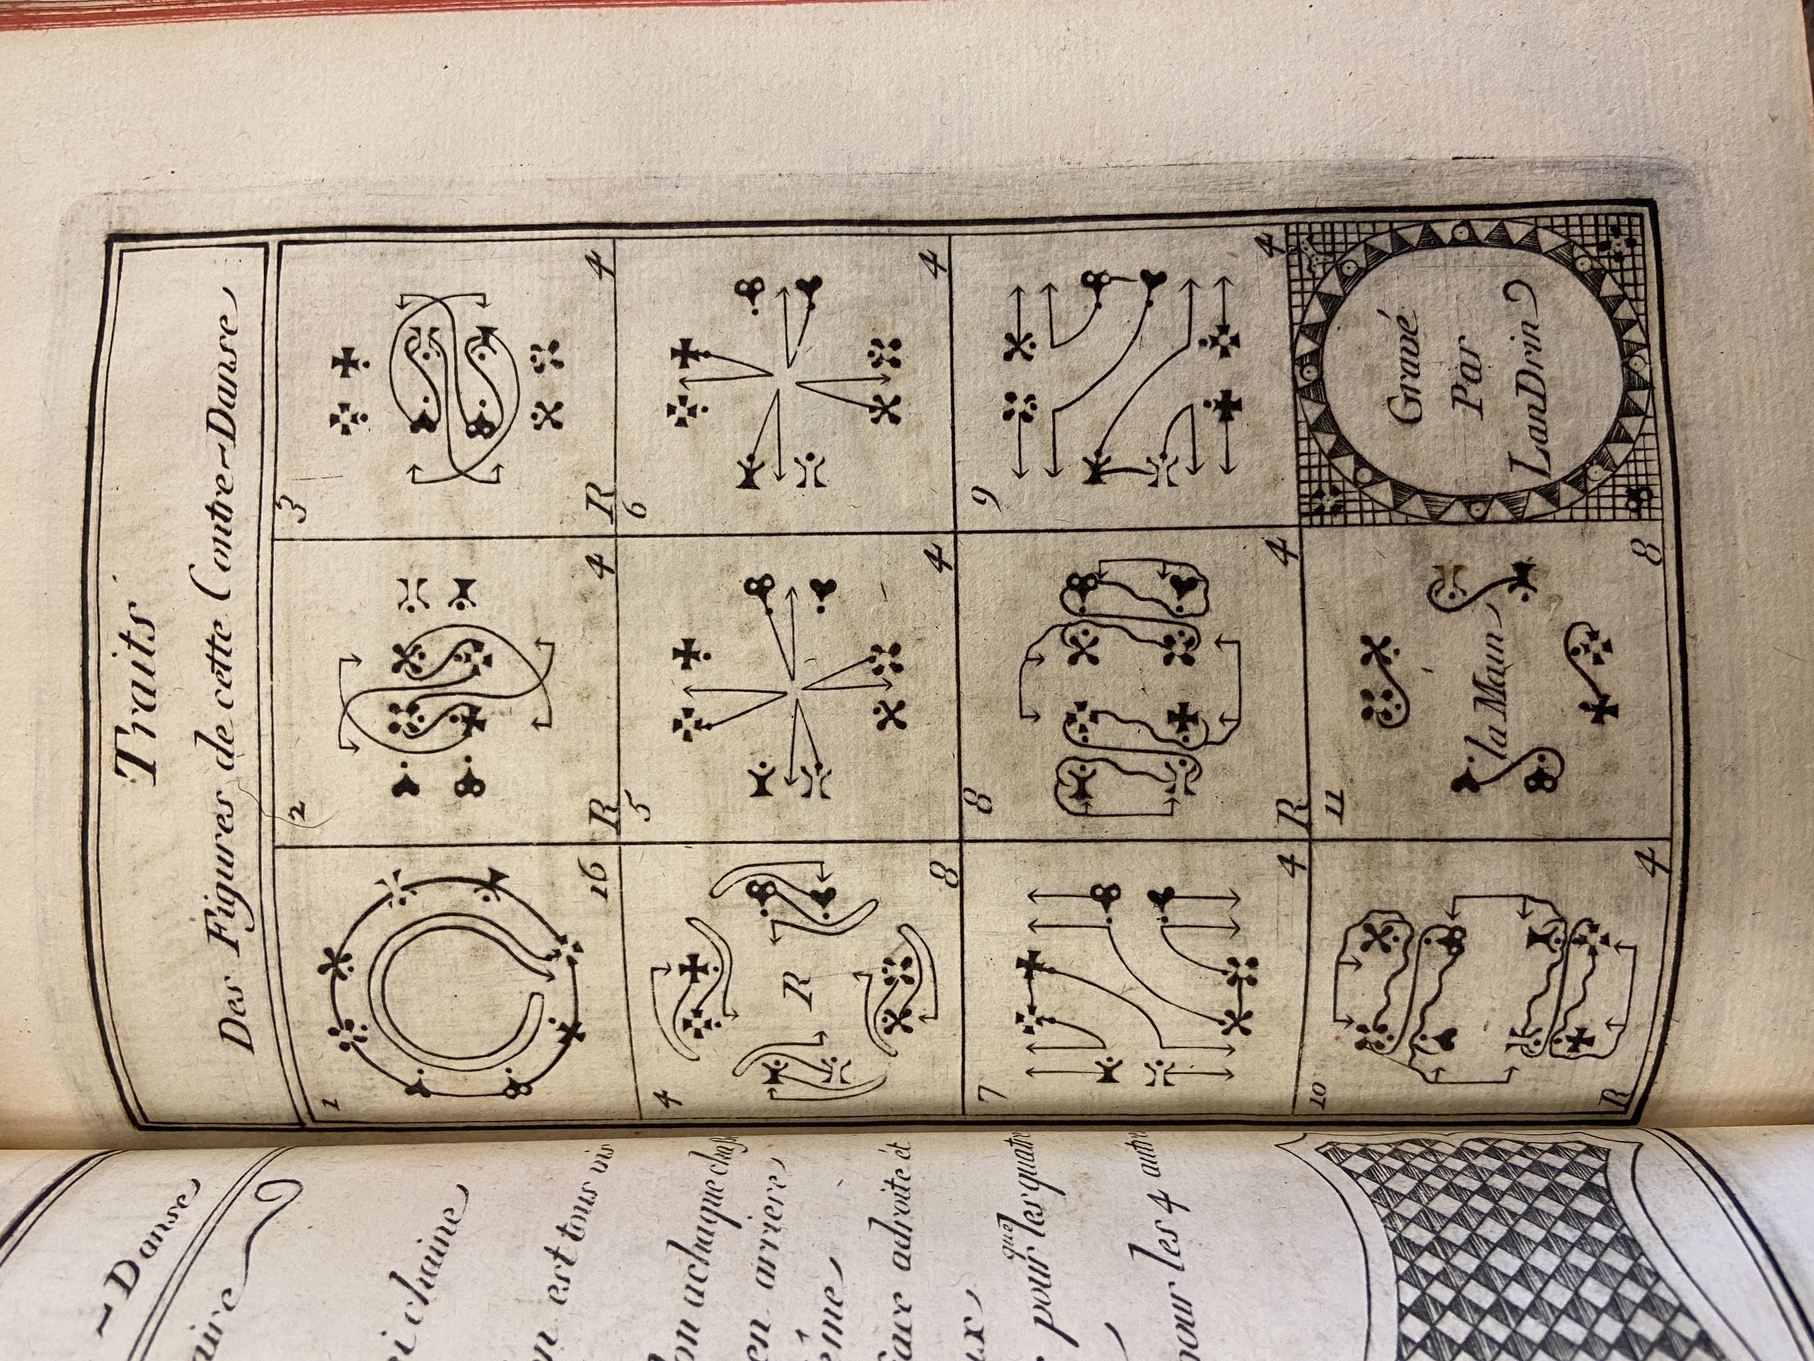 Traits
Des Figures de cette Contre-Danse
1
16
2
R
4
3
R
4
4
R
8
5
4
6
4
7
4
8
R
4
9
4
10
R
4
11
la Main
8
Gravé
Par
LanDrin
Danse
aire
ei chaine
n est tous vis
en arriere
ême
face adroite et
ux
que
pour les quatre
pour les 4 autre